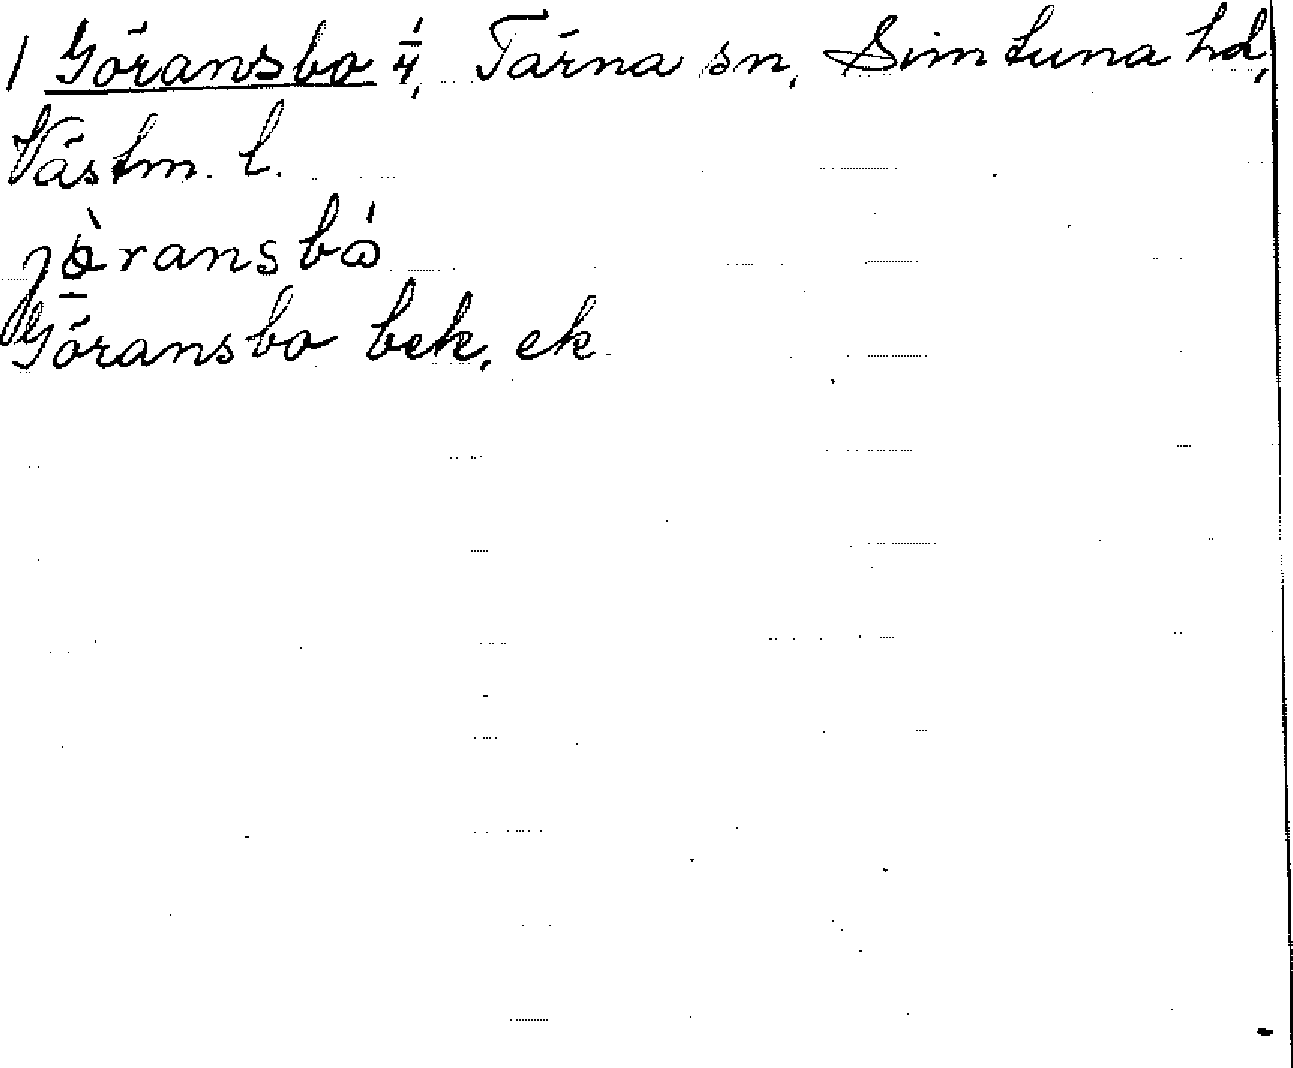 1 Göransbo 1/4, Tärna sn, Simtuna hd,
Västm. l.
Göransbo bek. ek